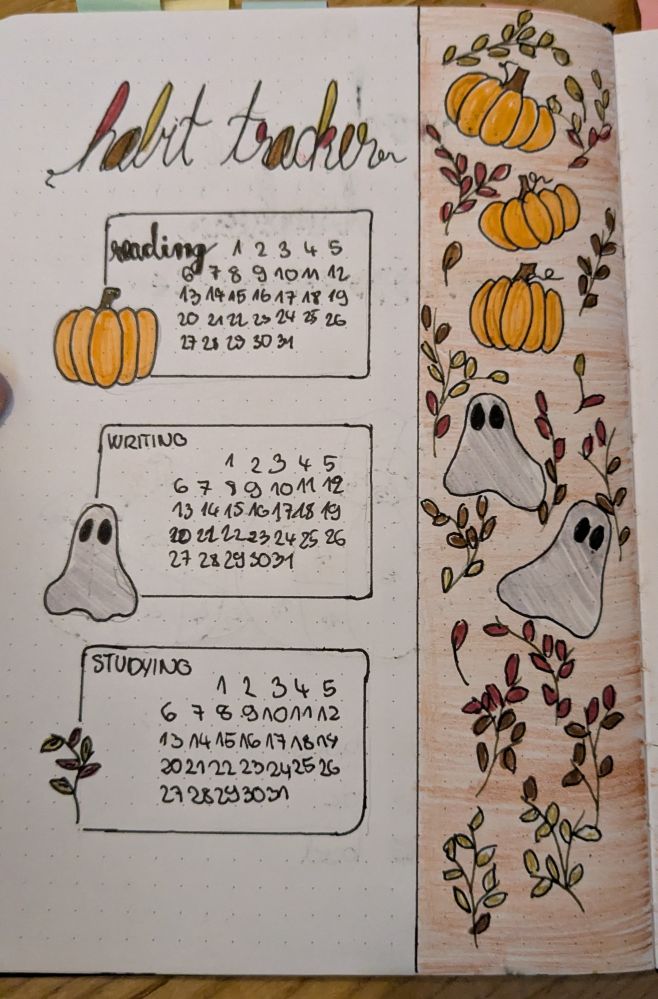 habit tracker
reading 1 2 3 4 5
6 7 8 9 10 11 12
13 14 15 16 17 18 19
20 21 22 23 24 25 26
27 28 29 30 31
WRITING
1 2 3 4 5
6 7 8 9 10 11 12
13 14 15 16 17 18 19
20 21 22 23 24 25 26
27 28 29 30 31
STUDYING
1 2 3 4 5
6 7 8 9 10 11 12
13 14 15 16 17 18 19
20 21 22 23 24 25 26
27 28 29 30 31